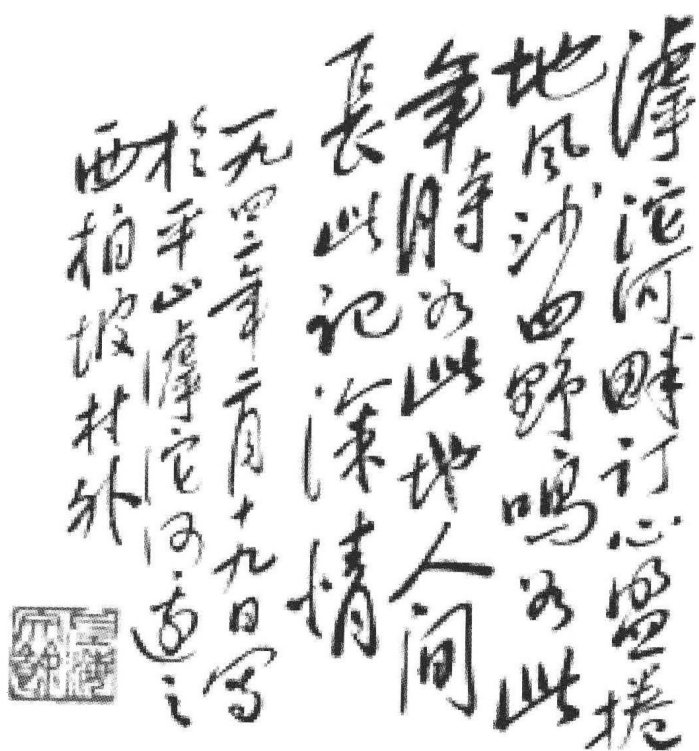 滹沱河畔订心盟捲
地风沙四野鸣如此
年時如此地人间
長此记深情
一九四二年二月十九日写
於平山滹沱河邊之
西柏坡村外